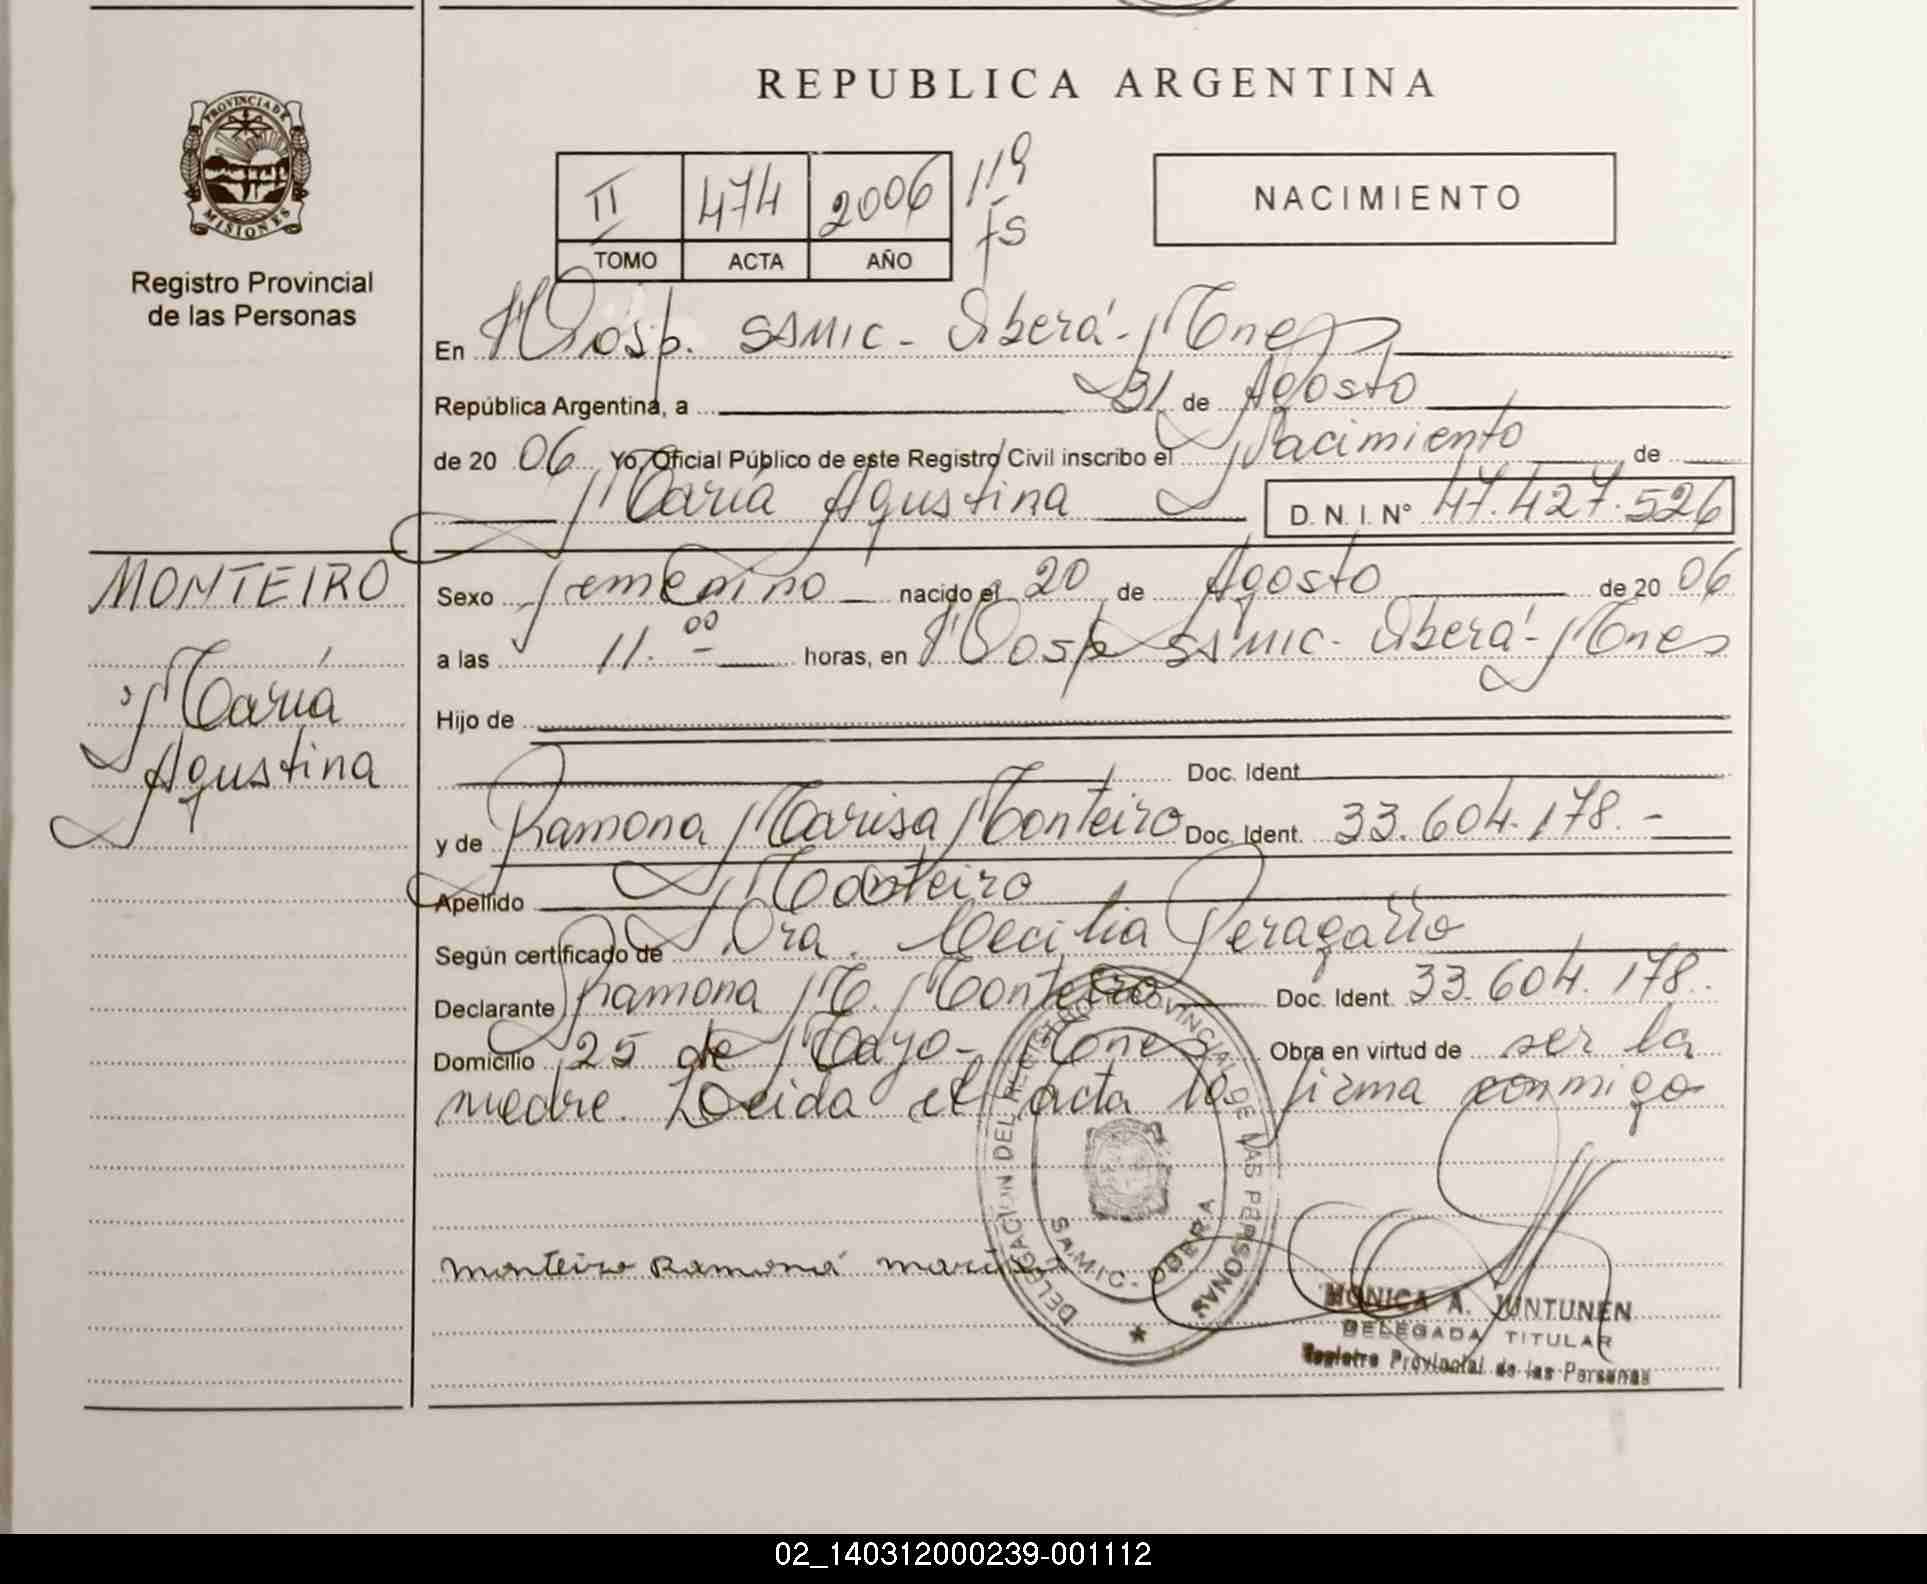 REPUBLICA ARGENTINA
PROVINCIA DE
MISIONES
Registro Provincial
de las Personas
II 474 2006 119
TOMO ACTA AÑO fs
NACIMIENTO
En Hosp. SAMIC - Oberá - Mnes
República Argentina, a 31 de Agosto
de 2006 Yo, Oficial Público de este Registro Civil inscribo el Nacimiento de
María Agustina D. N. I. N° 47.427.526
MONTEIRO
María
Agustina
Sexo femenino nacido el 20 de Agosto de 2006
a las 11.00 horas, en Hosp SAMIC - Oberá - Mnes
Hijo de
Doc. Ident
y de Ramona Marisa Monteiro Doc. Ident. 33.604.178.-
Apellido Monteiro
Según certificado de Dra. Cecilia
Declarante Ramona M. Monteiro Doc. Ident. 33.604.178.
Domicilio 25 de Mayo - Mnes Obra en virtud de ser la
madre. Leída el acta la firma conmigo
DELEGACION DEL REGISTRO PROVINCIAL DE LAS PERSONAS
SAMIC - OBERA
Monteiro Ramona marisa
MONICA A. JUNTUNEN
DELEGADA TITULAR
Registro Provincial de las Personas
02_140312000239-001112